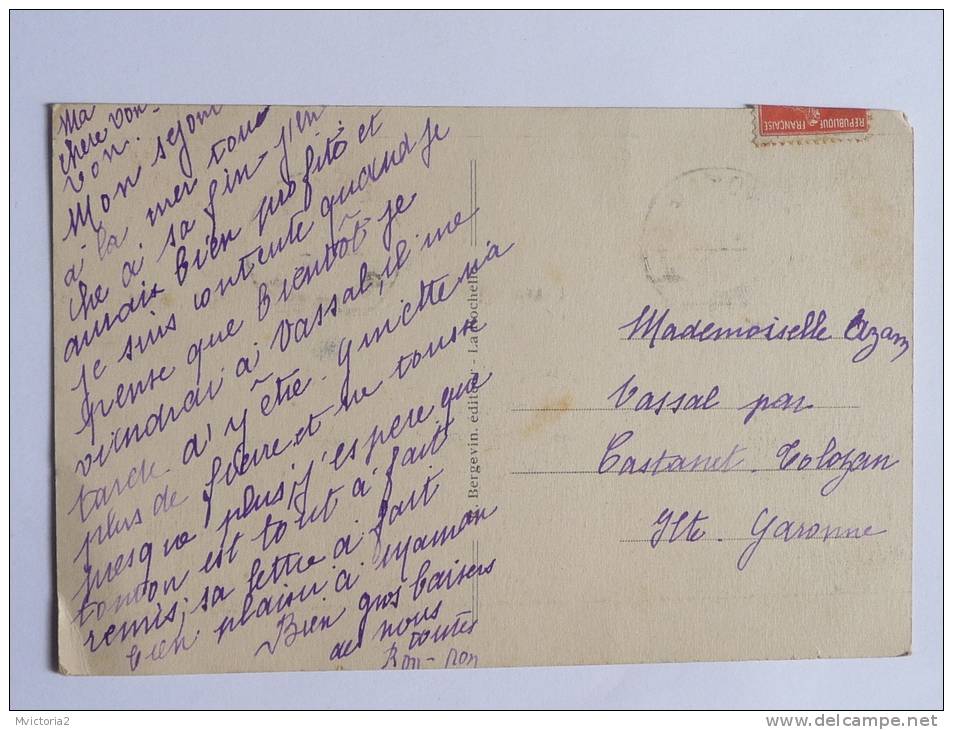 Ma
chère Von-
Von.
Mon séjour
à la mer tou
che à sa fin j'en
aurais bien profité et
je suis contente quand je
pense que bientôt je
viendrai à Vassal, il me
tarde d'y être. Ginette n'a
plus de fièvre et ne tousse
presque plus, j'espère que
tonton est tout à fait
remis, sa lettre a fait
bien plaisir à Maman
Bien gros baisers
de nous
toutes
Ron-Ron
Bergevin, éditeur - La Rochelle
REPUBLIQUE FRANÇAISE
Mademoiselle Azam
Vassal par
Castanet-Tolozan
Hte Garonne
Mvictoria2
www.delcampe.net